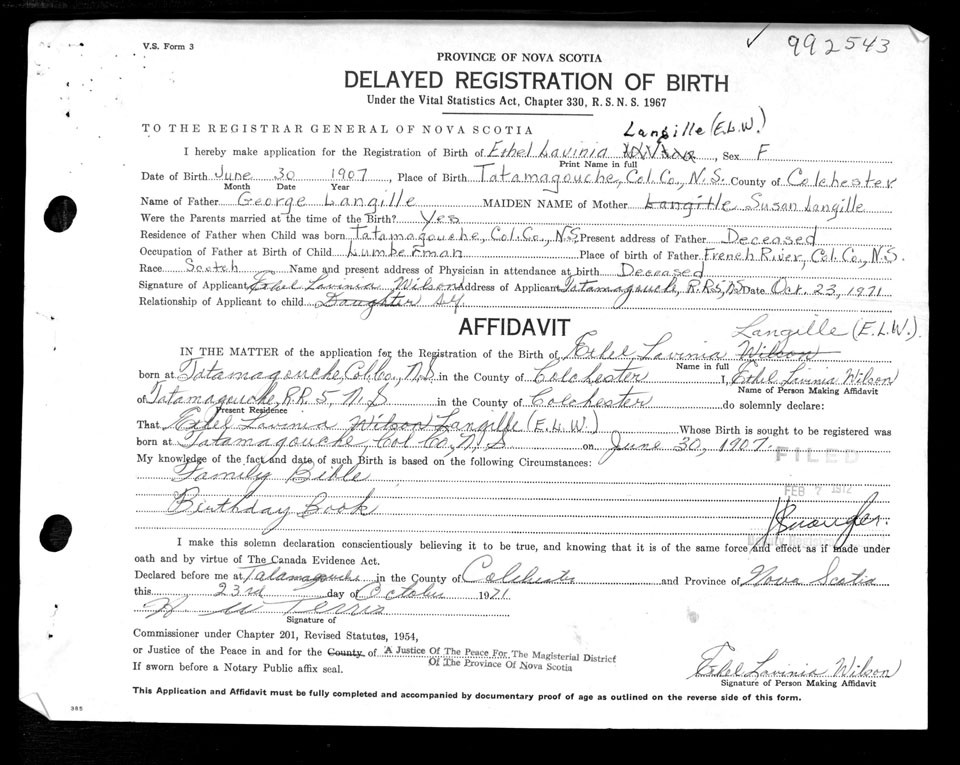 V.S. Form 3
✓ 992543
PROVINCE OF NOVA SCOTIA
DELAYED REGISTRATION OF BIRTH
Under the Vital Statistics Act, Chapter 330, R. S. N. S. 1967
TO THE REGISTRAR GENERAL OF NOVA SCOTIA
Langille (E.L.W.)
I hereby make application for the Registration of Birth of Ethel Lavinia , Sex F
Print Name in full
Date of Birth June 30 1907 , Place of Birth Tatamagouche, Col. Co., N.S. County of Colchester
Month Date Year
Name of Father George Langille MAIDEN NAME of Mother Langille Susan Langille
Were the Parents married at the time of the Birth? Yes
Residence of Father when Child was born Tatamagouche, Col. Co., N.S. Present address of Father Deceased
Occupation of Father at Birth of Child Lumberman Place of birth of Father French River, Col. Co., N.S.
Race Scotch Name and present address of Physician in attendance at birth Deceased
Signature of Applicant Ethel Lavinia Wilson Address of Applicant Tatamagouche, R.R.5, N.S. Date Oct. 23, 1971
Relationship of Applicant to child Daughter Self
AFFIDAVIT
Langille (E.L.W.).
IN THE MATTER of the application for the Registration of the Birth of Ethel Lavinia Wilson
Name in full
born at Tatamagouche, Col. Co., N.S. in the County of Colchester I, Ethel Lavinia Wilson
Name of Person Making Affidavit
of Tatamagouche, R.R. 5, N.S in the County of Colchester do solemnly declare:
Present Residence
That Ethel Lavinia Wilson Langille (E.L.W.) Whose Birth is sought to be registered was
born at Tatamagouche, Col Co, N, S on June 30, 1907.
My knowledge of the fact and date of such Birth is based on the following Circumstances:
FILED
Family Bible
FEB 7 1972
Birthday Book
I make this solemn declaration conscientiously believing it to be true, and knowing that it is of the same force and effect as if made under
oath and by virtue of The Canada Evidence Act.
Declared before me at Tatamagouche in the County of Colchester and Province of Nova Scotia
this 23rd day of October 1971
H W Terris
Signature of
Commissioner under Chapter 201, Revised Statutes, 1954,
or Justice of the Peace in and for the County of A Justice Of The Peace For The Magisterial District
Of The Province Of Nova Scotia
If sworn before a Notary Public affix seal.
Ethel Lavinia Wilson
Signature of Person Making Affidavit
This Application and Affidavit must be fully completed and accompanied by documentary proof of age as outlined on the reverse side of this form.
385